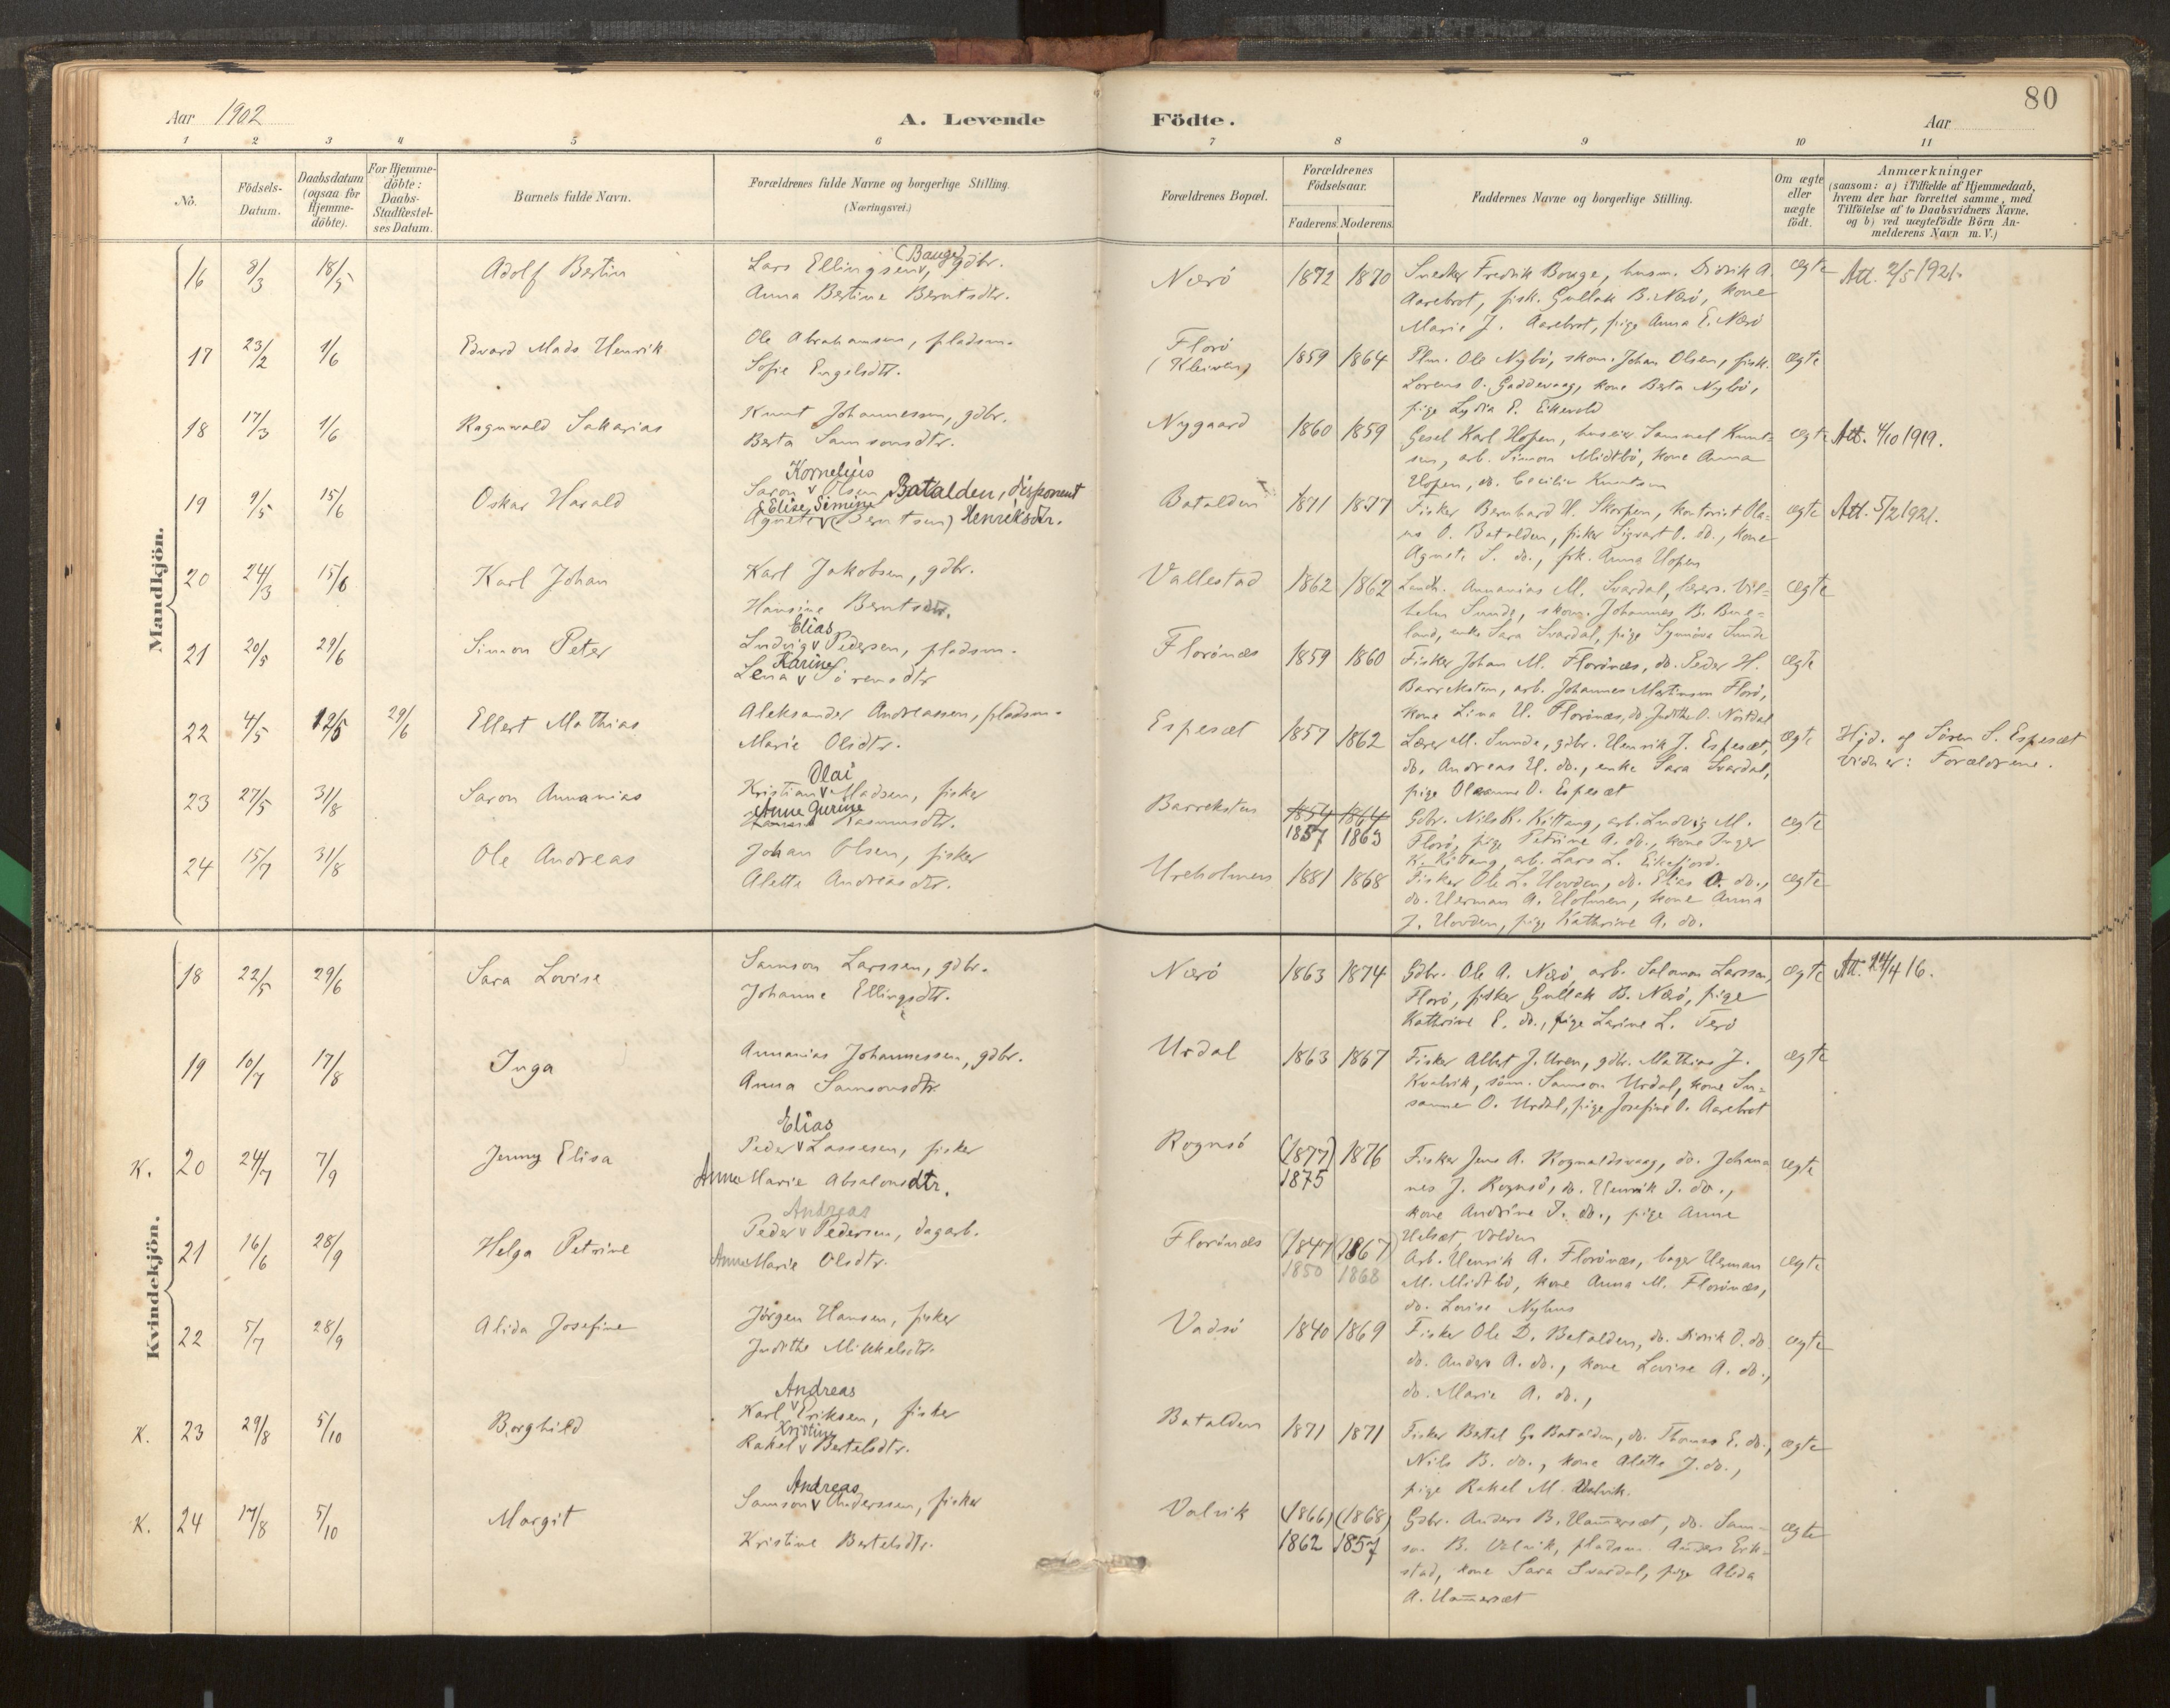 80
Aar 1902
A. Levende
Födte.
Aar
1 2 3 4 5 6 7 8 9 10 11
No.
Födsels-Datum.
Daabsdatum (ogsaa for Hjemme-döbte).
For Hjemme-döbte: Daabs-Stadfæstel-ses Datum.
Barnets fulde Navn.
Forældrenes fulde Navne og borgerlige Stilling.
(Næringsvei.)
Forældrenes Bopæl.
Forældrenes Födselsaar.
Faderens. Moderens.
Faddernes Navne og borgerlige Stilling.
Om ægte eller uægte födt.
Anmærkninger
(saasom: a) i Tilfælde af Hjemmedaab,
hvem der har forrettet samme, med
Tilföielse af to Daabsvidners Navne,
og b) ved uægtefödte Börn An-
melderens Navn m. V.)
Mandkjön.
16 8/3 18/5 Adolf Bertin
Lars Ellingsen (Bauge), gdbr.
Anna Bertine Berntsdtr.
Nærö 1872 1870
Snedker Fredrik Bouge, husm. Didrik A.
Aarebrot, fisk. Gullak B. Nærö, kone
Marie J. Aarebrot, pige Anna E. Nærö
ægte Att. 2/5 1921.
17 23/2 1/6 Edvard Mads Henrik
Ole Abrahamsen, pladsm.
Sofie Engelsdtr.
Florö
(Kleiven) 1859 1864
Plm. Ole Nybö, skom. Johan Olsen, fisk.
Lorens O. Gaddevaag, kone Berta Nybö,
pige Lydia E. Eikevold
ægte
18 17/3 1/6 Ragnvald Sakarias
Knut Johannessen, gdbr.
Berta Samsonsdtr.
Nygaard 1860 1859
Gesel Karl Hopen, huseier Samuel Knut-
sen, arb. Simon Midtbö, kone Anna
Hopen, do. Cecilie Knutsen
ægte Att. 4/10 1919.
19 9/5 15/6 Oskar Harald
Kornelius
Saron v Olsen Batalden, disponent
Elise Simine
Agnete v (Berntsen) Henriksdtr.
Batalden 1871 1877
Fisker Bernhard H. Skorpen, kontorist Ola-
us O. Batalden, fisker Sigvart O. do., kone
Agnete S. do., frk. Anna Hopen
ægte Att. 5/2 1921.
20 24/3 15/6 Karl Johan
Karl Jakobsen, gdbr.
Hansine Berntsdtr.
Vallestad 1862 1862
Landh. Annanias M. Svardal, lærer Vil-
helm Sunde, skom. Johannes B. Bue-
land, enke Sara Svardal, pige Synnöve Sunde
ægte
21 20/5 29/6 Simon Peter
Elias
Ludvig v Pedersen, pladsm.
Karine
Lena v Sörensdtr
Florönæs 1859 1860
Fisker Johan M. Florönæs, do. Peder H.
Barreksten, arb. Johannes Martinsen Florö,
kone Lina H. Florönæs, do. Judithe O. Nordal
ægte
22 4/5 12/5 29/6 Ellert Mathias
Aleksander Andreassen, pladsm.
Marie Olsdtr.
Espesæt 1857 1862
Lærer M. Sunde, gdbr. Henrik J. Espesæt,
do. Andreas H. do., enke Sara Svardal,
pige Oleanne O. Espesæt
ægte Hjd. af Sören S. Espesæt
Vidner: Forældrene.
23 27/5 31/8 Saron Annanias
Olai
Kristian v Madsen, fisker
Anne Gurine
Rasmusdtr.
Barreksten 1854 1864
1857 1863
Gdbr. Nils R. Kittang, arb. Ludvig M.
Florö, pige Petrine A. do., kone Inger
K. Kittang, arb. Lars L. Eikefjord.
ægte
24 15/7 31/8 Ole Andreas
Johan Olsen, fisker
Alette Andreasdtr.
Hreholmen 1881 1868
Fisker Ole L. Hovden, do. Elias O. do.,
do. Herman A. Holmen, kone Anna
J. Hovden, pige Kathrine A. do.
ægte
Kvindekjön.
18 22/5 29/6 Sara Lovise
Samson Larssen, gdbr.
Johanne Ellingsdtr.
Nærö 1863 1874
Gdbr. Ole A. Nærö, arb. Salomon Larssen,
Florö, fisker Gullak B. Nærö, pige
Kathrine E. do., pige Larine L. Terö
ægte Att. 24/4 16.
19 10/7 17/8 Inga
Annanias Johannessen, gdbr.
Anna Samsonsdtr.
Urdal 1863 1867
Fisker Albert J. Uren, gdbr. Mathias J.
Kvalvik, söm. Samson Urdal, kone Su-
sanne O. Urdal, pige Josefine O. Aarebrot
ægte
K. 20 24/7 7/9 Jenny Elisa
Elias
Peder v Lassesen, fisker
Anne Marie Absalonsdtr.
Rognsö (1877) 1876
1875
Fisker Jens A. Rognaldsvaag, do. Johan-
nes J. Rognsö, do. Henrik J. do.,
kone Andrine J. do., pige Anne
Helsæt, Volden
ægte
21 16/6 28/9 Helga Petrine
Andreas
Peder v Pedersen, dagarb.
Anne Marie Olsdtr.
Florönæs (1847) (1867)
1850 1868
Arb. Henrik A. Florönæs, bager Herman
M. Midtbö, kone Anna M. Florönæs,
do. Lovise Nyhus
ægte
22 5/7 28/9 Alida Josefine
Jörgen Hansen, fisker
Judithe Mikkelsdtr.
Vadsö 1840 1869
Fisker Ole D. Batalden, do. Didrik O. do.
do. Anders A. do., kone Lovise A. do.,
do. Marie A. do.,
ægte
K. 23 29/8 5/10 Borghild
Andreas
Karl v Eriksen, fisker
Kristine
Rakel v Bertelsdtr.
Batalden 1871 1871
Fisker Bertel G. Batalden, do. Thomas E. do.,
Nils B. do., kone Alette J. do.,
pige Rakel M. Valvik.
ægte
K. 24 17/8 5/10 Margit
Andreas
Samson v Anderssen, fisker
Kristine Bertelsdtr.
Valvik (1866) (1868)
1862 1857
Gdbr. Anders B. Hammersæt, do. Sam-
son B. Valvik, pladsm. Anders Erik-
stad, kone Sara Svardal, pige Alida
A. Hammersæt
ægte